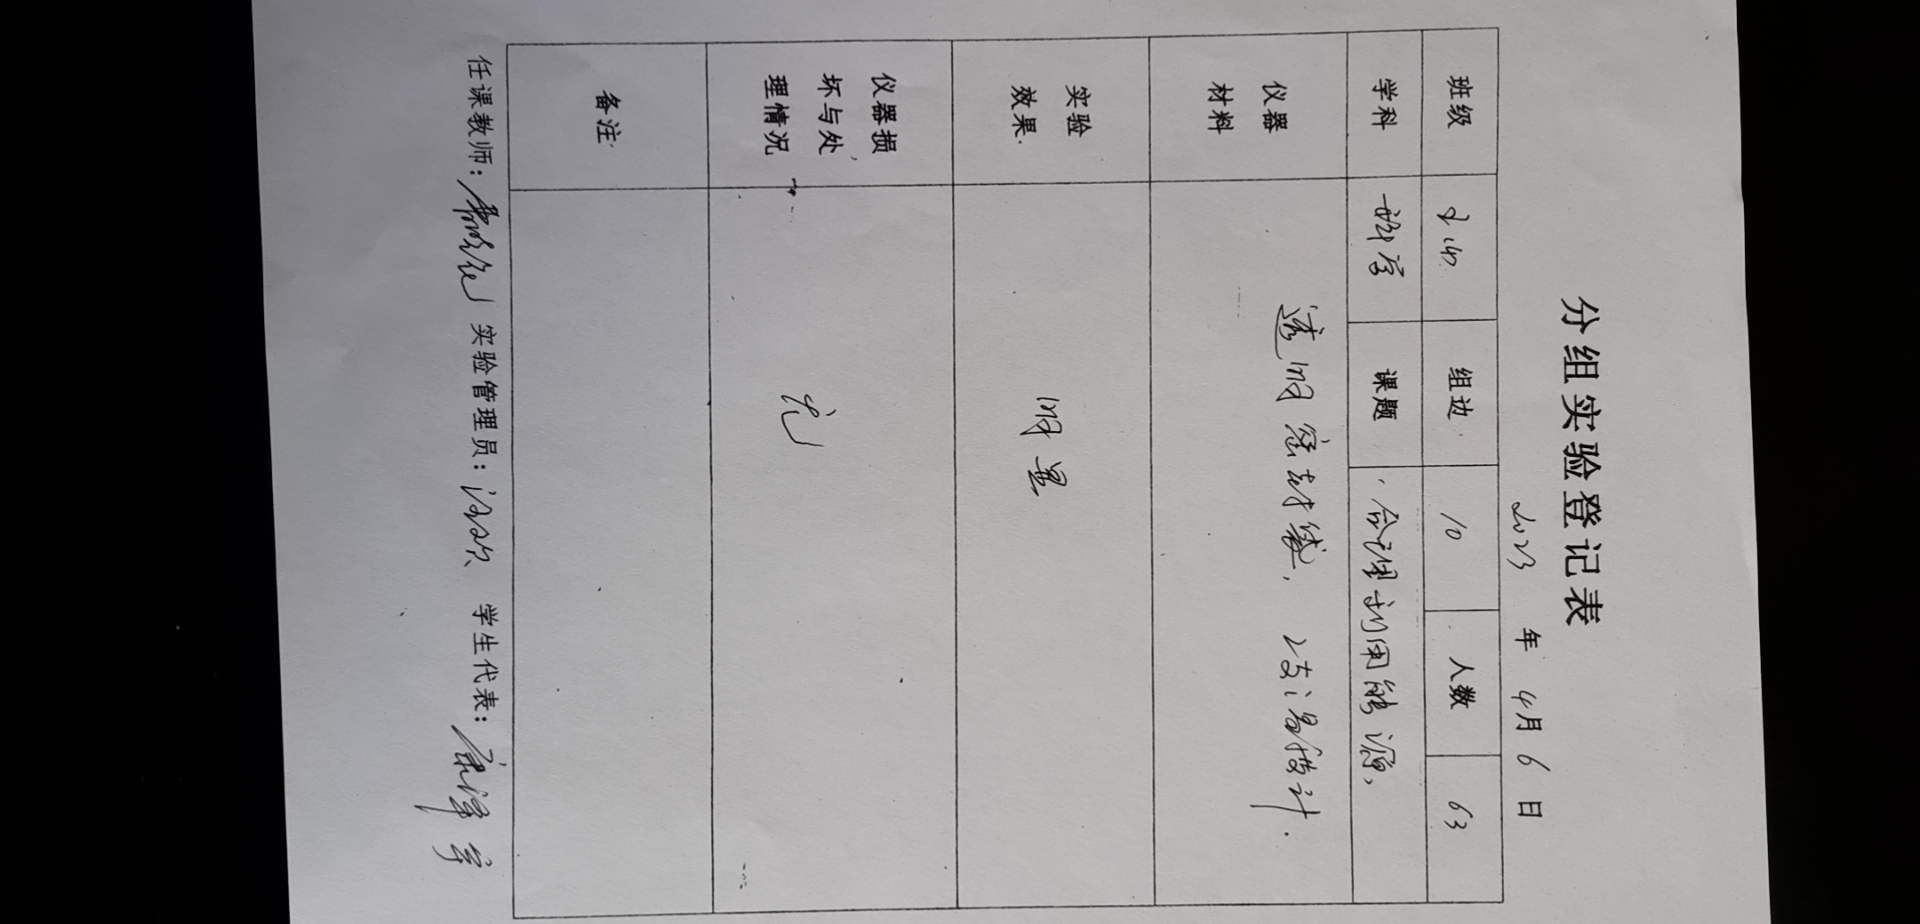 分组实验登记表
2023 年 4月 6 日
班级 组边 10 人数 63
学科 科学 课题 合理利用能源
仪器
材料 透明密封袋, 2支温度计.
实验
效果 明显
仪器损
坏与处
理情况 无
备注
任课教师: 实验管理员: 学生代表: